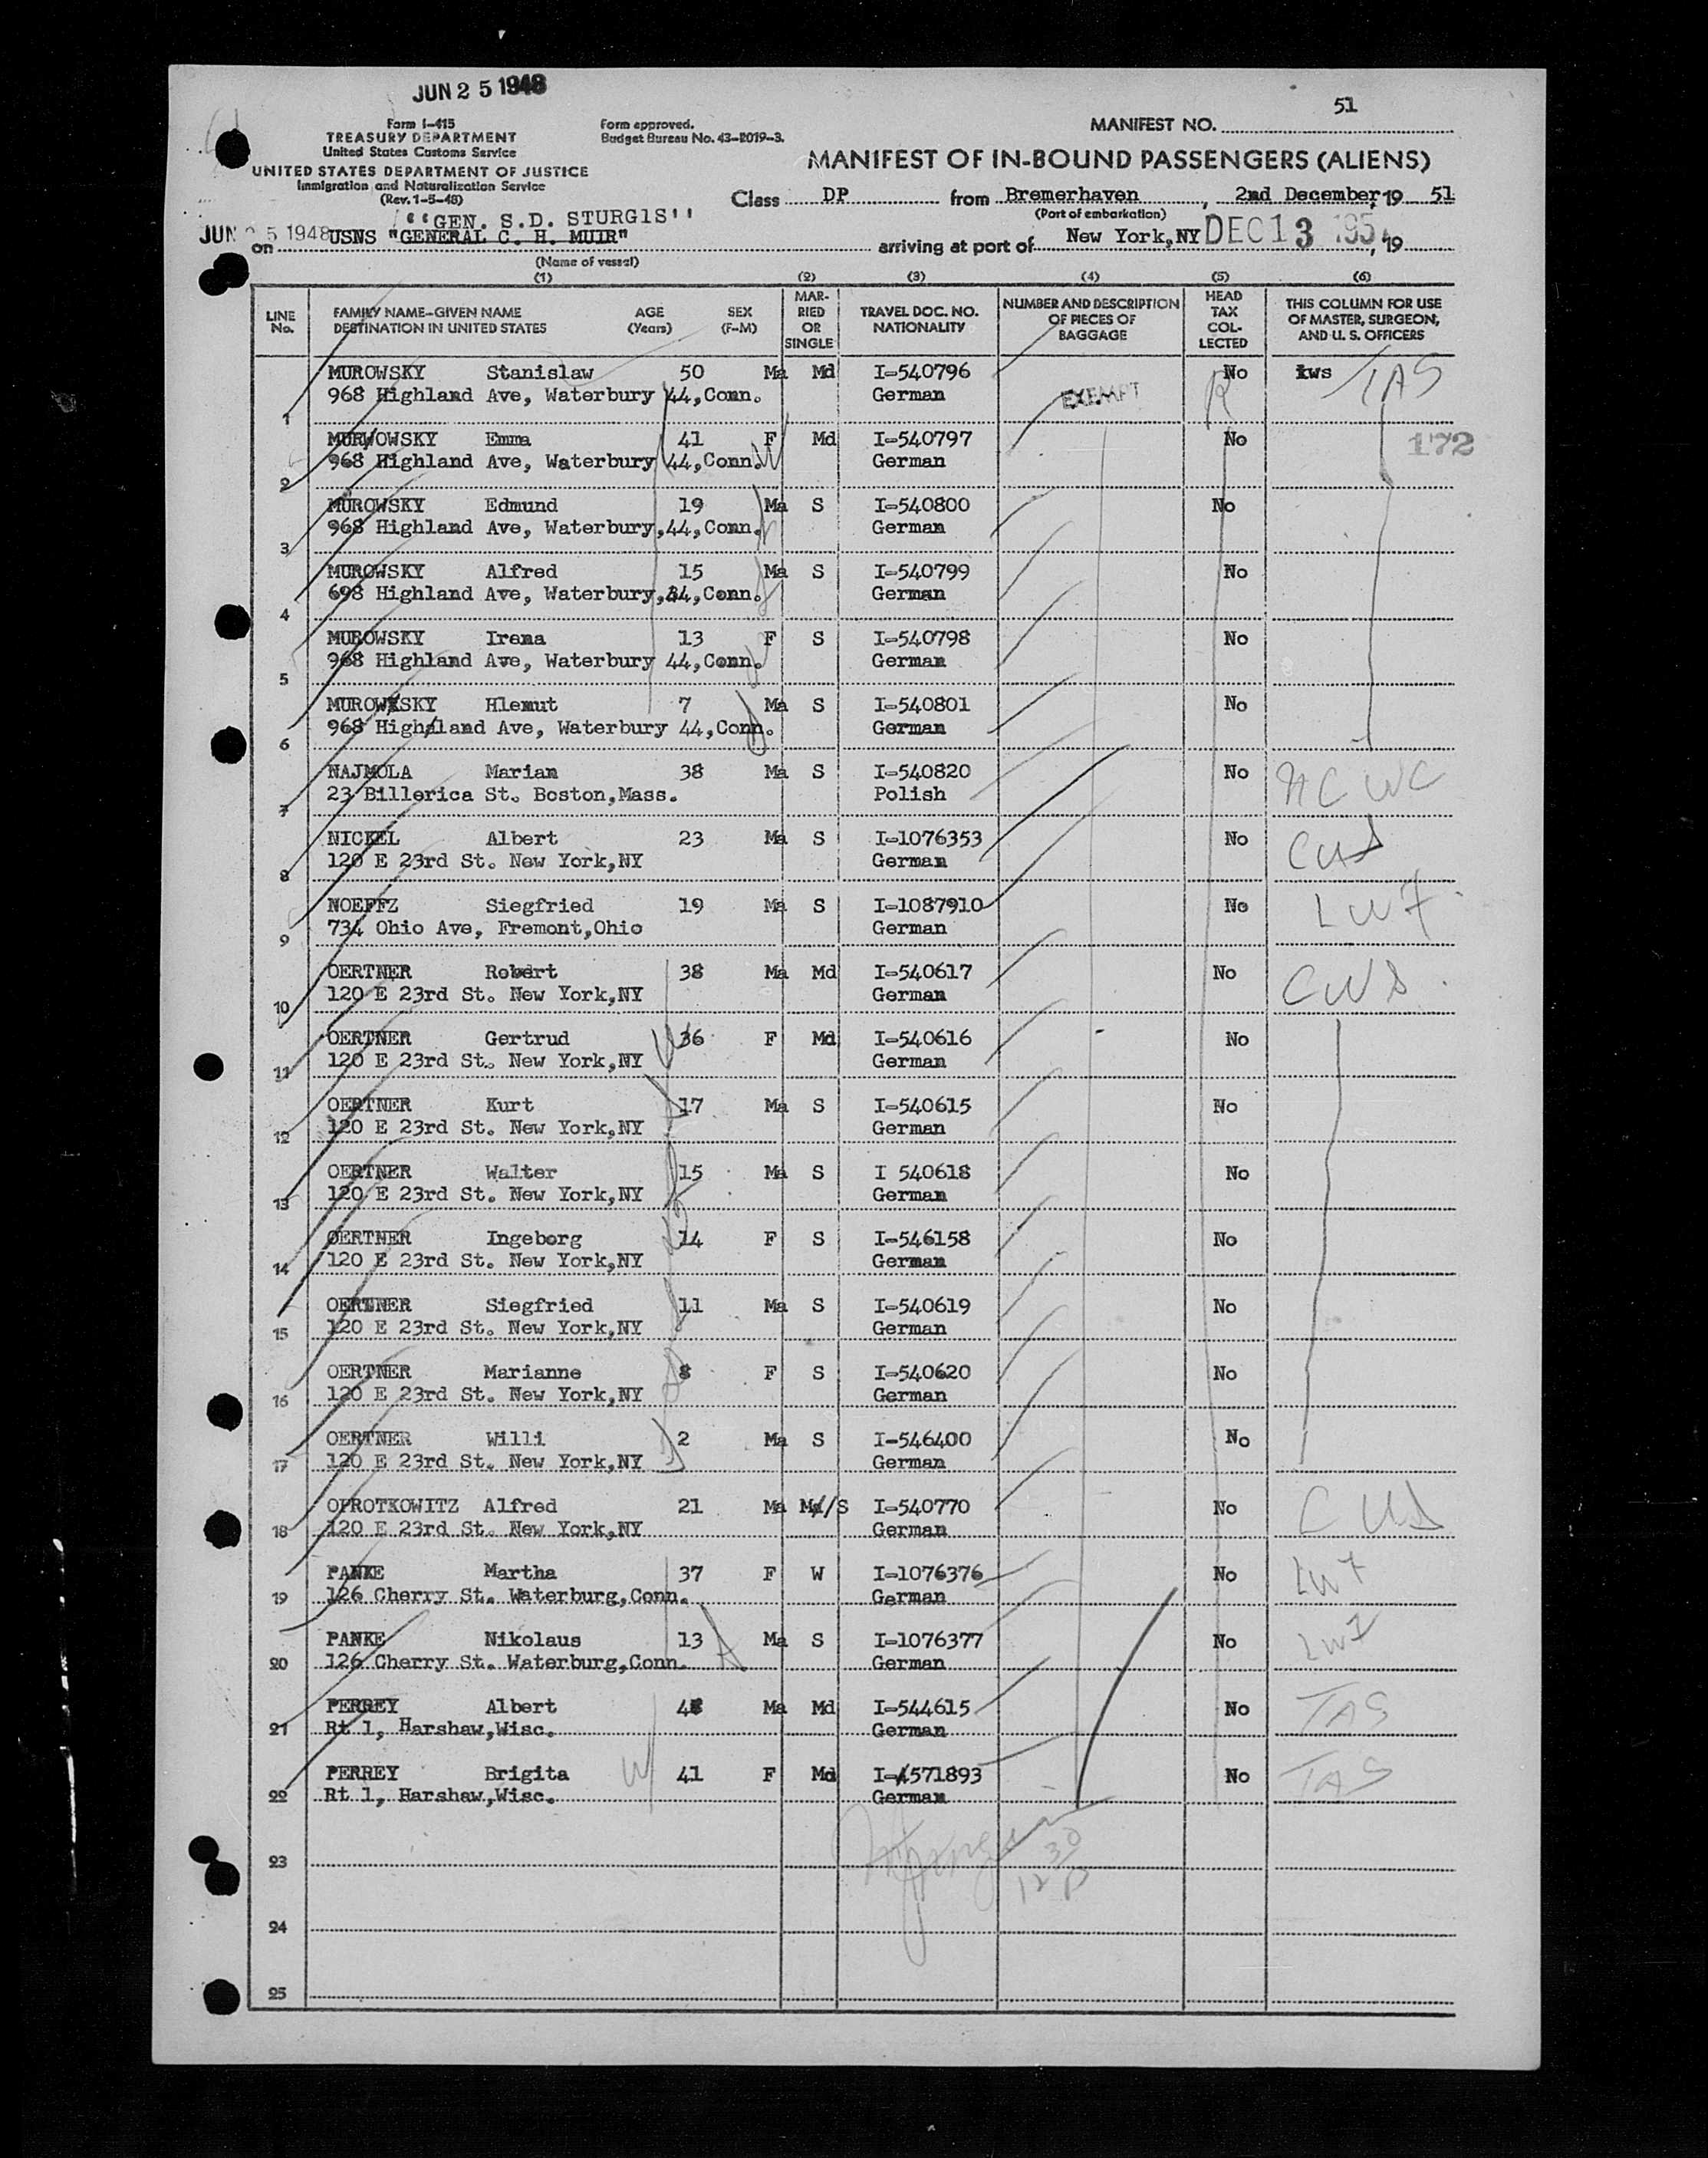 JUN 25 1948
51
Form I-415
TREASURY DEPARTMENT
United States Customs Service
UNITED STATES DEPARTMENT OF JUSTICE
Immigration and Naturalization Service
(Rev. 1-5-48)
Form approved.
Budget Bureau No. 43-R019-3.
MANIFEST NO.
MANIFEST OF IN-BOUND PASSENGERS (ALIENS)
Class DP from Bremerhaven, 2nd December, 19 51
(Port of embarkation)
"GEN. S.D. STURGIS"
JUN 25 1948
on USNS "GENERAL C. H. MUIR" arriving at port of New York,NY DEC 13 195 , 19
(Name of vessel)
(1) (2) (3) (4) (5) (6)
LINE No. FAMILY NAME-GIVEN NAME DESTINATION IN UNITED STATES AGE (Years) SEX (F-M) MARRIED OR SINGLE TRAVEL DOC. NO. NATIONALITY NUMBER AND DESCRIPTION OF PIECES OF BAGGAGE HEAD TAX COLLECTED THIS COLUMN FOR USE OF MASTER, SURGEON, AND U. S. OFFICERS
MUROWSKY Stanislaw 50 Ma Md I-540796 No lws TAS
1 968 Highland Ave, Waterbury 44,Conn. German EXEMPT
MURWOWSKY Emma 41 F Md I-540797 No 172
2 968 Highland Ave, Waterbury 44,Conn. German
MUROWSKY Edmund 19 Ma S I-540800 No
3 968 Highland Ave, Waterbury,44,Conn. German
MUROWSKY Alfred 15 Ma S I-540799 No
4 698 Highland Ave, Waterbury,44,Conn. German
MUROWSKY Irena 13 F S I-540798 No
5 968 Highland Ave, Waterbury 44,Conn. German
MUROWSKY Hlemut 7 Ma S I-540801 No
6 968 Highland Ave, Waterbury 44,Conn. German
NAJMOLA Marian 38 Ma S I-540820 No NCWC
7 23 Billerica St. Boston,Mass. Polish
NICKEL Albert 23 Ma S I-1076353 No CWS
8 120 E 23rd St. New York,NY German
NOEFFZ Siegfried 19 Ma S I-1087910 No LWF
9 734 Ohio Ave, Fremont,Ohio German
OERTNER Robert 38 Ma Md I-540617 No CWS
10 120 E 23rd St. New York,NY German
OERTNER Gertrud 36 F Md I-540616 No
11 120 E 23rd St. New York,NY German
OERTNER Kurt 17 Ma S I-540615 No
12 120 E 23rd St. New York,NY German
OERTNER Walter 15 Ma S I 540618 No
13 120 E 23rd St. New York,NY German
OERTNER Ingeborg 14 F S I-546158 No
14 120 E 23rd St. New York,NY German
OERTNER Siegfried 11 Ma S I-540619 No
15 120 E 23rd St. New York,NY German
OERTNER Marianne 8 F S I-540620 No
16 120 E 23rd St. New York,NY German
OERTNER Willi 2 Ma S I-546400 No
17 120 E 23rd St. New York,NY German
OPROTKOWITZ Alfred 21 Ma Md/S I-540770 No CWS
18 120 E 23rd St. New York,NY German
PANKE Martha 37 F W I-1076376 No LWF
19 126 Cherry St. Waterburg,Conn. German
PANKE Nikolaus 13 Ma S I-1076377 No LWF
20 126 Cherry St. Waterburg,Conn. German
PERREY Albert 48 Ma Md I-544615 No TAS
21 Rt 1, Harshaw,Wisc. German
PERREY Brigita 41 F Md I-571893 No TAS
22 Rt 1, Harshaw,Wisc. German
23 12 30 P
24
25